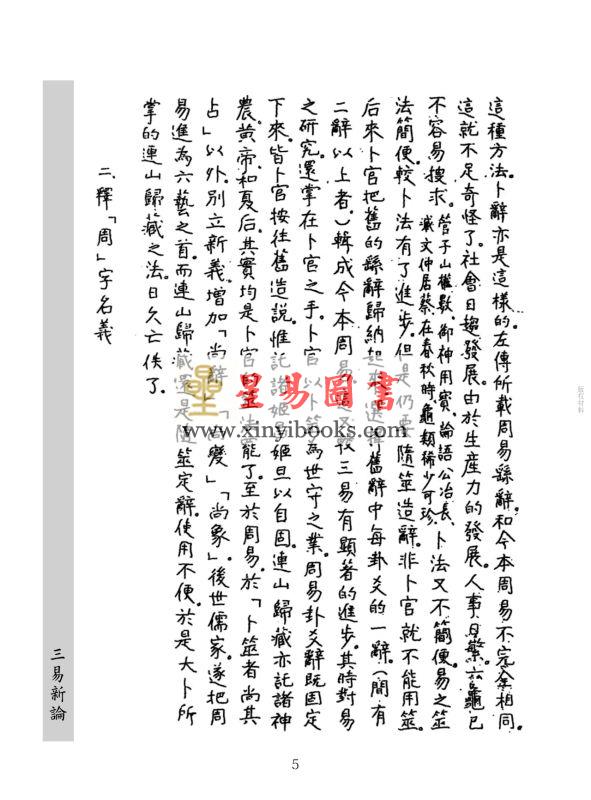 這種方法。卜辭亦是這樣的。左傳所載周易繇辭。和今本周易不完全相同。
這就不足奇怪了。社會日趨發展。由於生產力的發展。人事日繁。龜已
不容易搜求。管子山權數。御神用寶。論語公冶長。臧文仲居蔡。在春秋時龜類稀少可珍。卜法又不簡便。易之筮
法簡便。較卜法有了進步。但是仍要隨筮造辭。非卜官就不能用筮。
后來卜官把舊的繇辭歸納起來。選擇舊辭中每卦爻的一辭。(間有
二辭以上者。)輯成今本周易。這又較三易有顯著的進步。其時對易
之研究。還掌在卜官之手。卜官以卜筮為世守之業。周易卦爻辭既固定
下來。皆卜官按往舊造說。惟託諸姬昌姬旦以自固。連山歸藏亦託諸神
農。黃帝和夏后。其實均是卜官的筮法罷了。至於周易。於「卜筮者尚其
占」以外。別立新義。增加「尚辭」「尚變」「尚象」。後世儒家。遂把周
易進為六藝之首。而連山歸藏還是隨筮定辭。使用不便。於是大卜所
掌的連山歸藏之法。日久亡佚了。
二、釋「周」字名義
星易圖書
www.xinyibooks.com
版权材料
三易新論
5